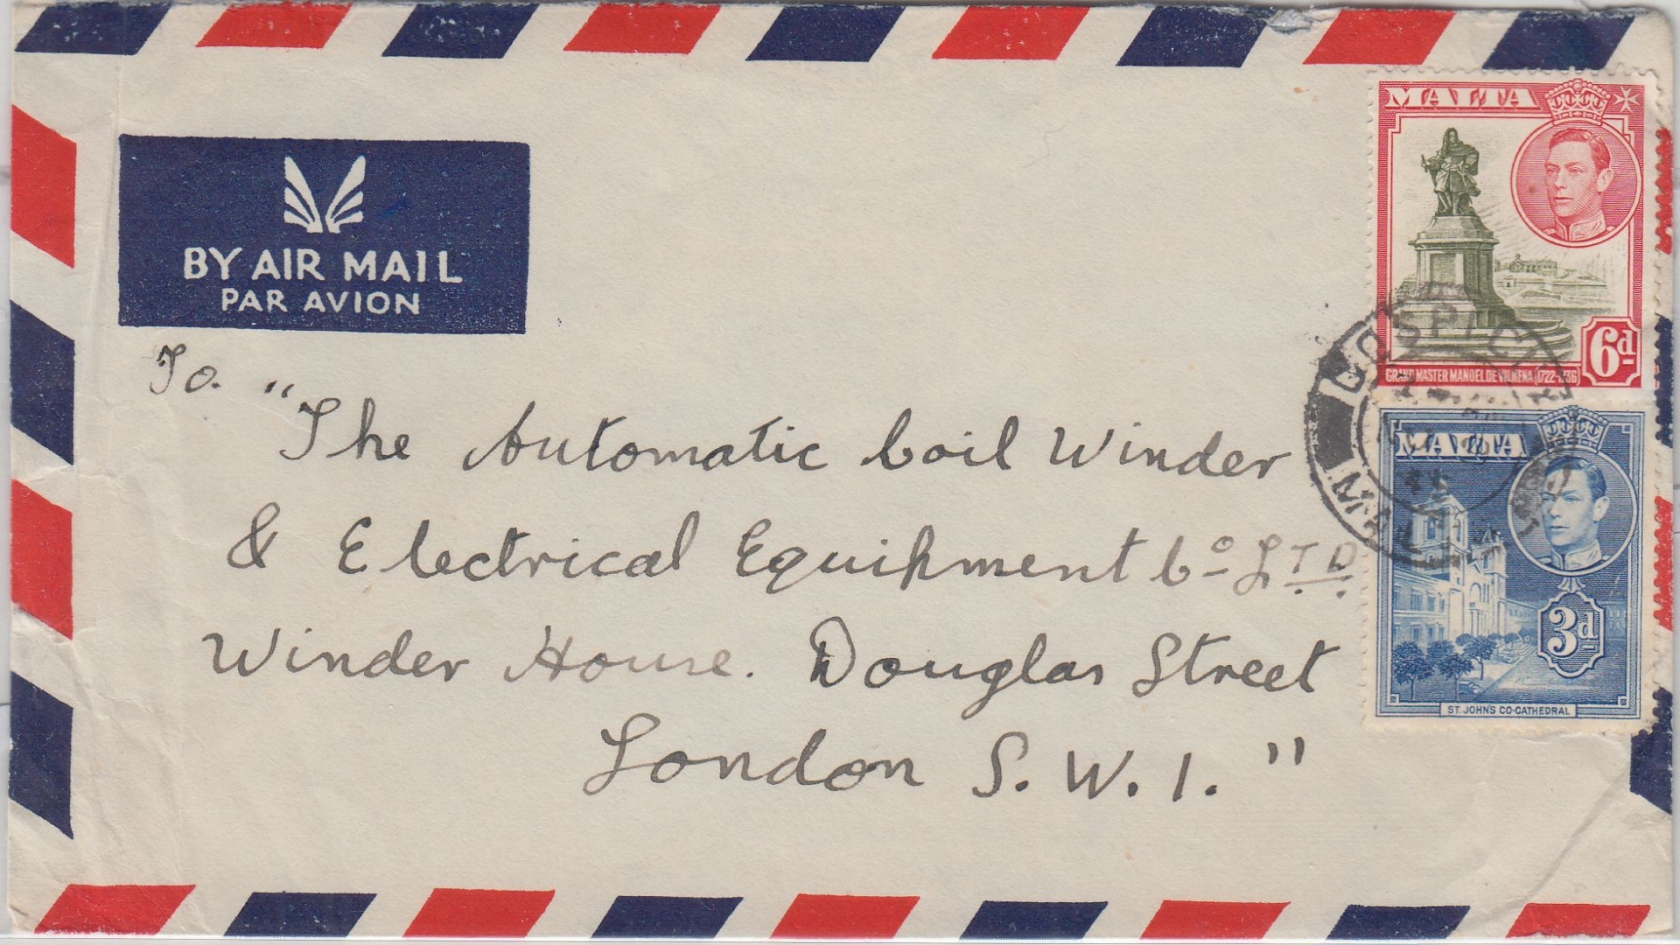 BY AIR MAIL
PAR AVION
To. "The Automatic Coil Winder
& Electrical Equipment Co LTD.
Winder House. Douglas Street
London S. W. 1."
MALTA
6d
GRAND MASTER MANOEL DE VILHENA 1722-1736
MALTA
3d
ST. JOHN'S CO-CATHEDRAL
COSPICUA